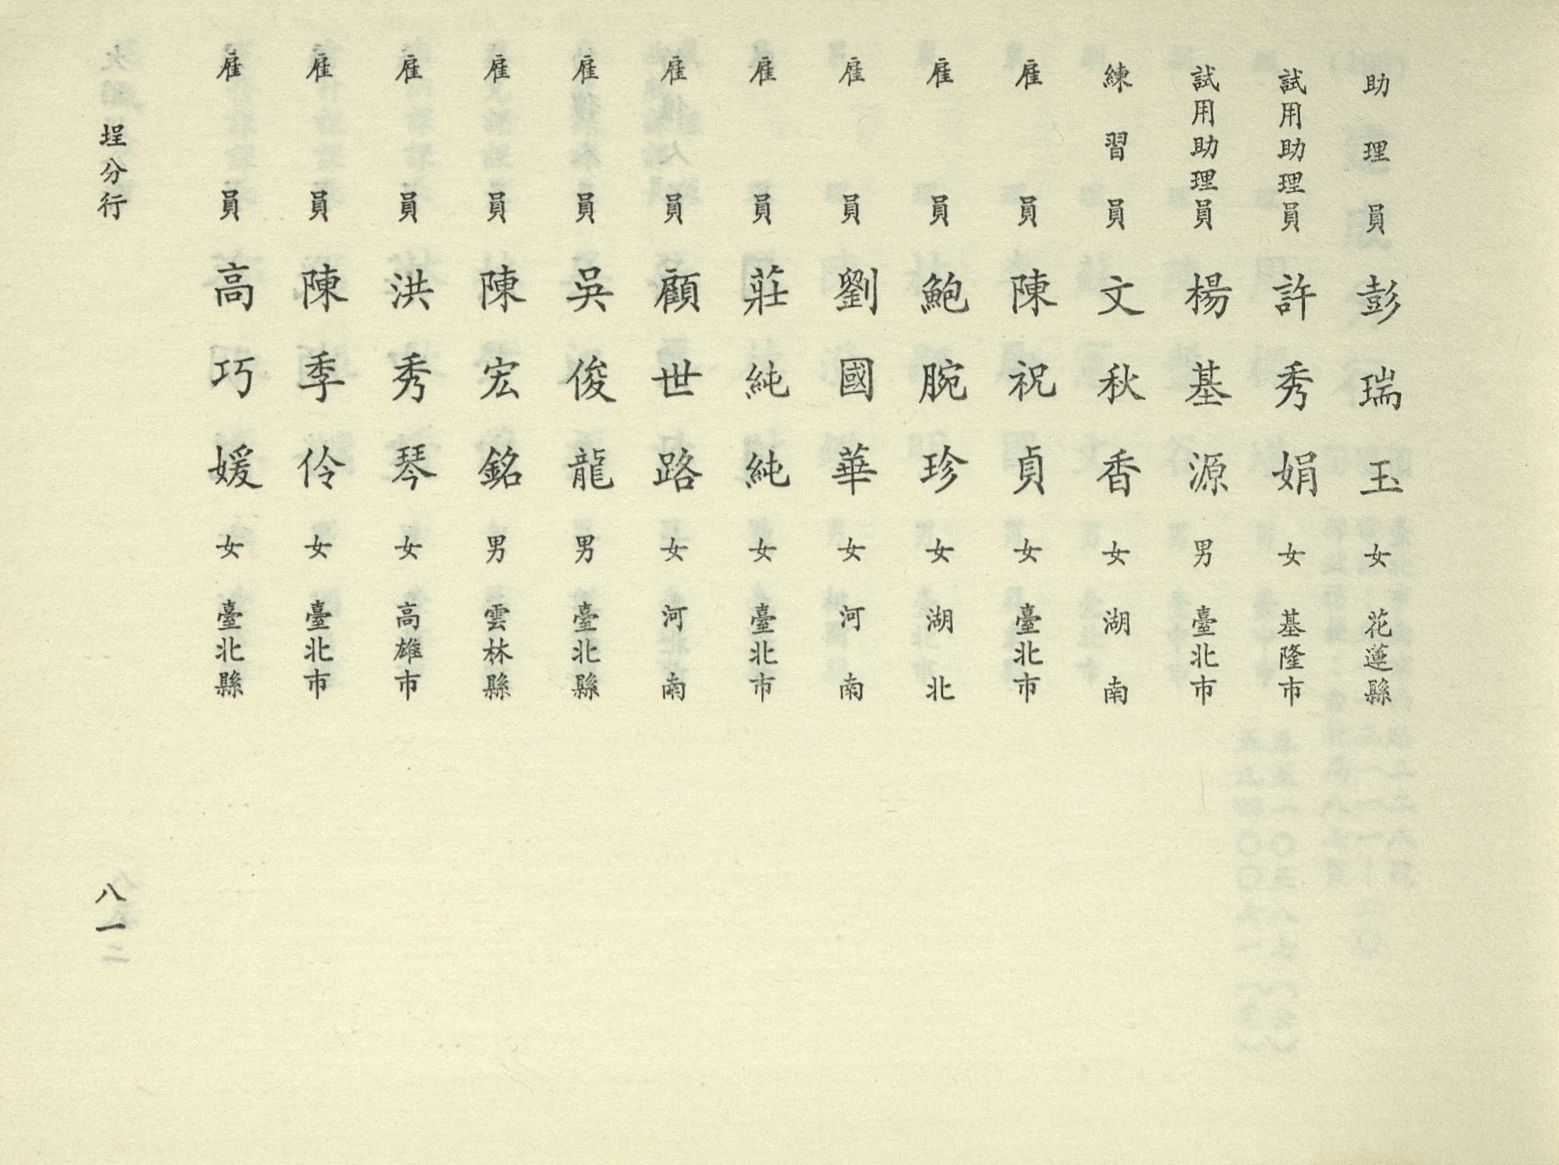 助理員 彭瑞玉 女 花蓮縣
試用助理員 許秀娟 女 基隆市
試用助理員 楊基源 男 臺北市
練習員 文秋香 女 湖南
雇員 陳祝貞 女 臺北市
雇員 鮑腕珍 女 湖北
雇員 劉國華 女 河南
雇員 莊純純 女 臺北市
雇員 顧世路 女 河南
雇員 吳俊龍 男 臺北縣
雇員 陳宏銘 男 雲林縣
雇員 洪秀琴 女 高雄市
雇員 陳季伶 女 臺北市
雇員 高巧媛 女 臺北縣
埕分行
八一